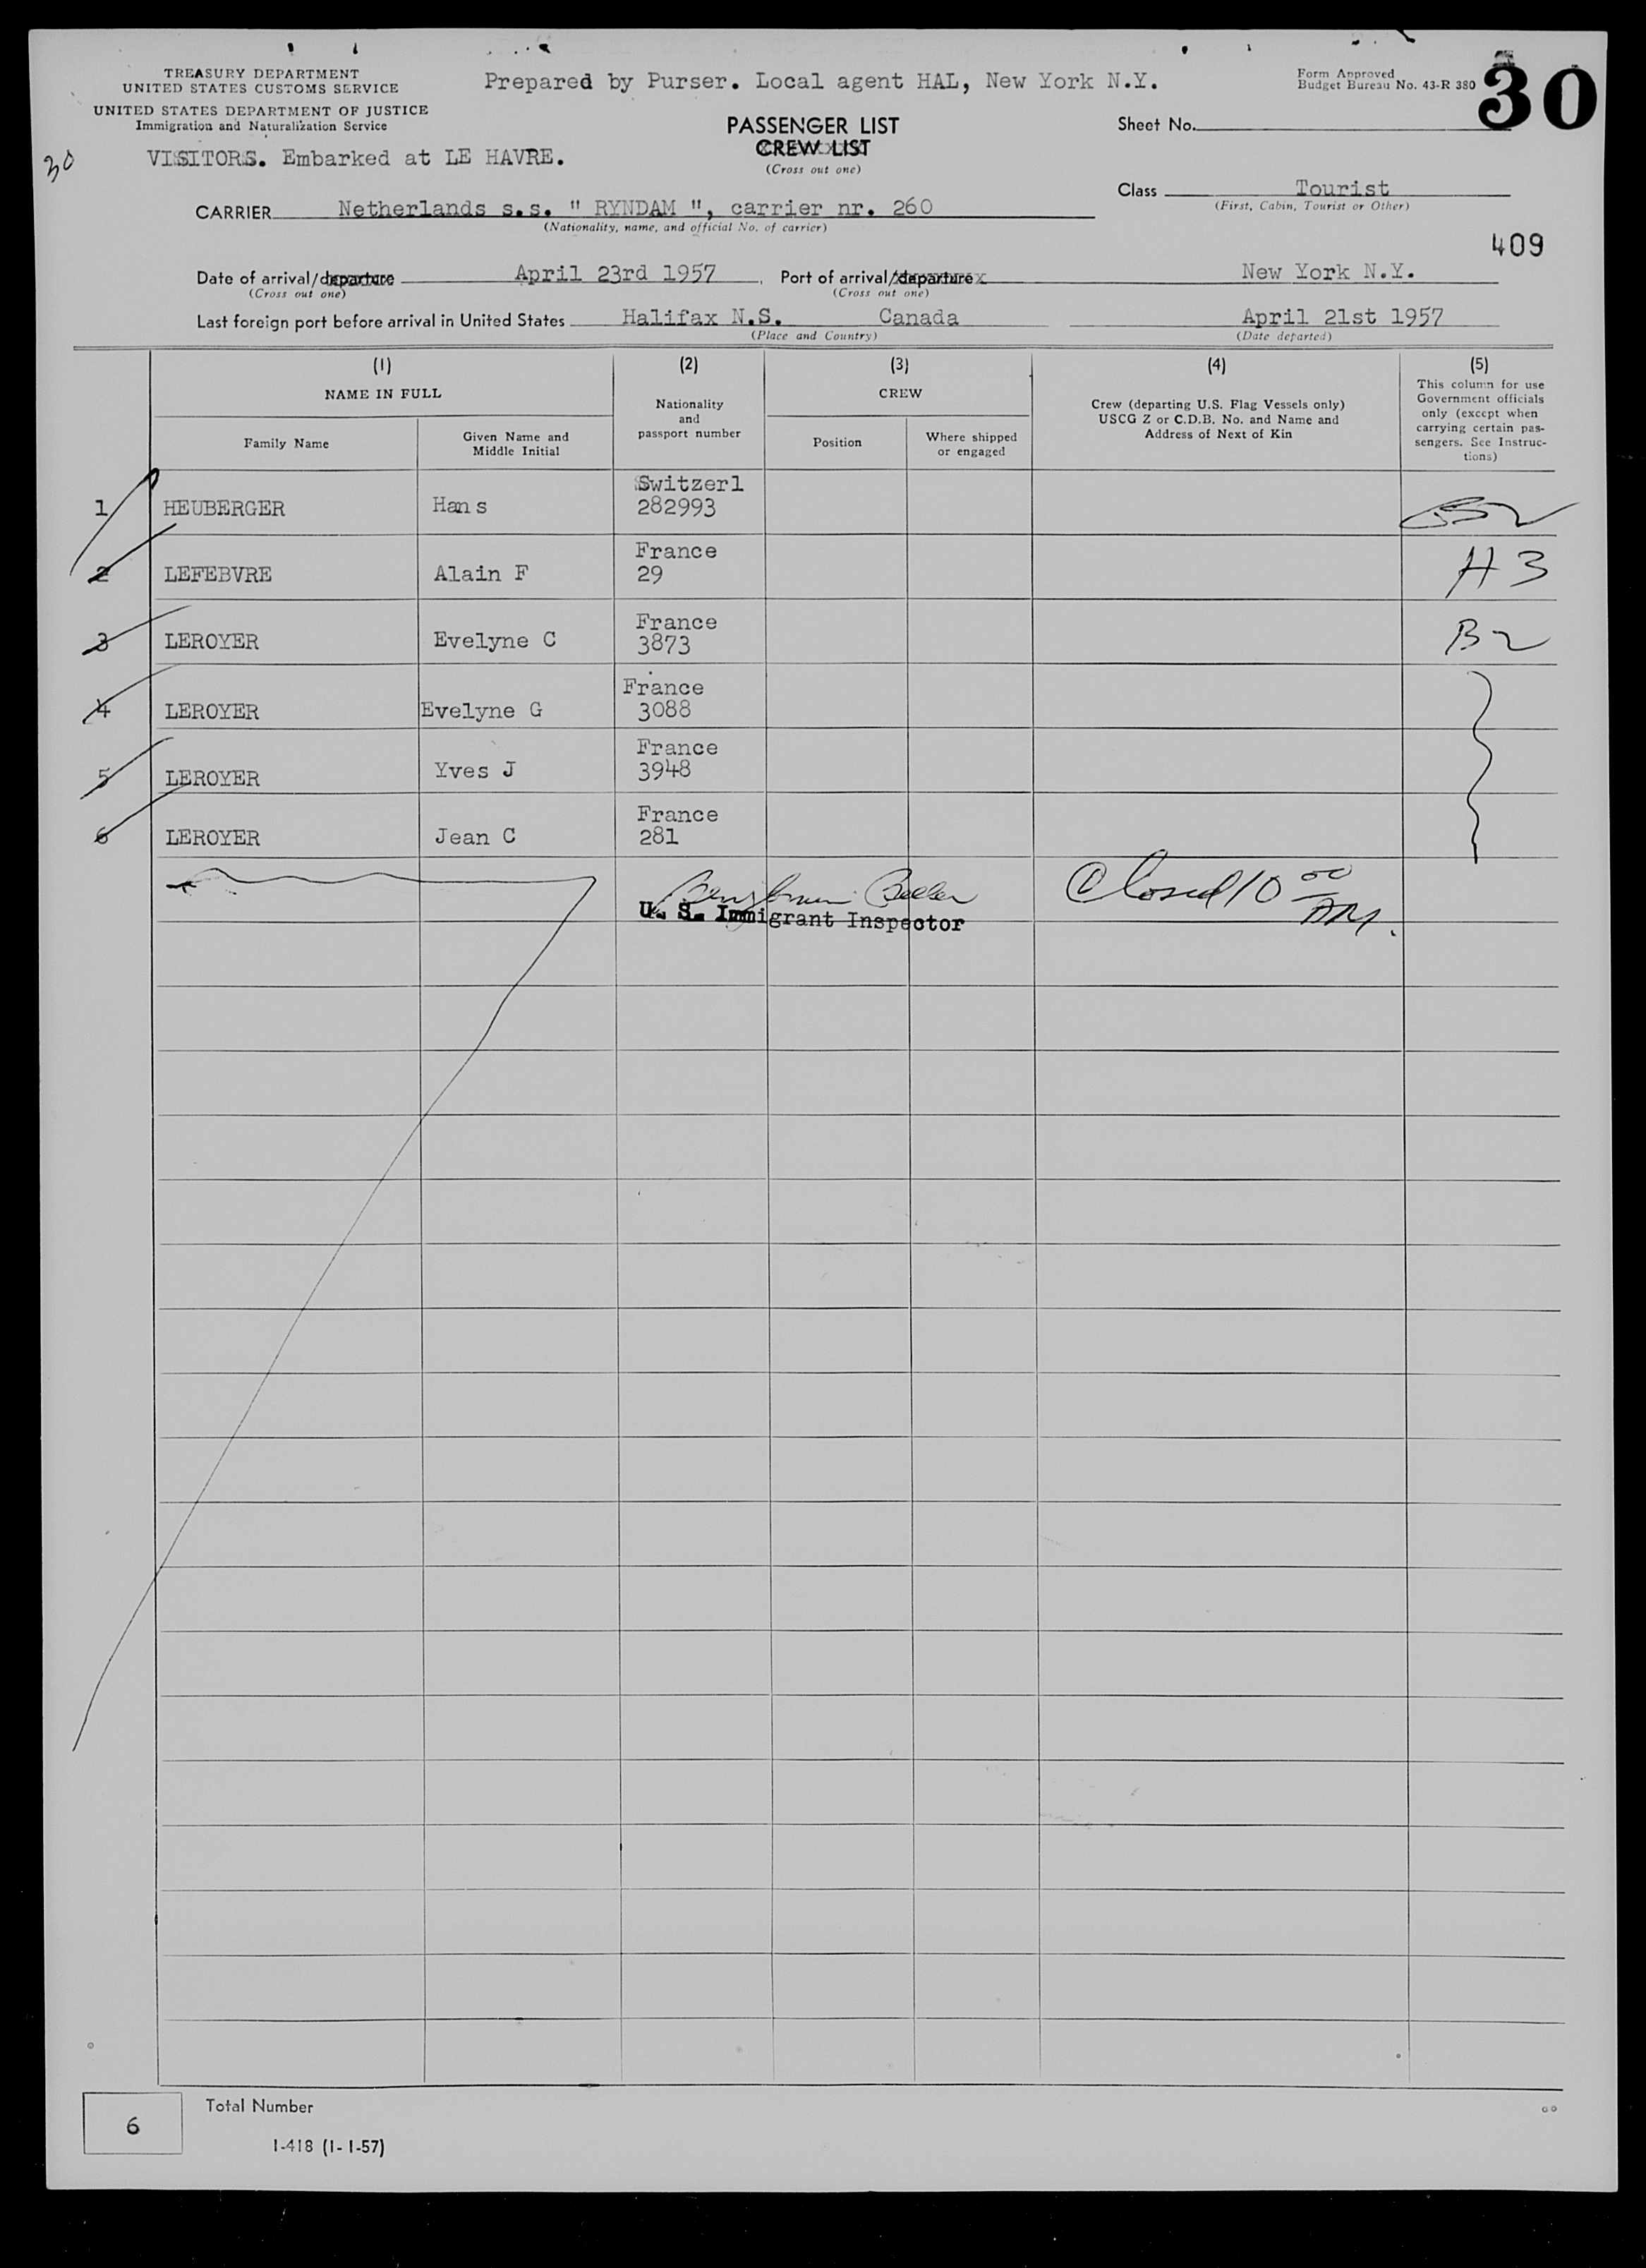 TREASURY DEPARTMENT
UNITED STATES CUSTOMS SERVICE
UNITED STATES DEPARTMENT OF JUSTICE
Immigration and Naturalization Service
Prepared by Purser. Local agent HAL, New York N.Y.
Form Approved
Budget Bureau No. 43-R 380
30
PASSENGER LIST
CREW LIST
(Cross out one)
Sheet No.
30
VISITORS. Embarked at LE HAVRE.
Class Tourist
(First, Cabin, Tourist or Other)
CARRIER Netherlands s.s. " RYNDAM ", carrier nr. 260
(Nationality, name, and official No. of carrier)
409
Date of arrival/departure April 23rd 1957 Port of arrival/departure New York N.Y.
(Cross out one) (Cross out one)
Last foreign port before arrival in United States Halifax N.S. Canada April 21st 1957
(Place and Country) (Date departed)
(1) (2) (3) (4) (5)
NAME IN FULL
Family Name
Given Name and
Middle Initial
Nationality
and
passport number
CREW
Position
Where shipped
or engaged
Crew (departing U.S. Flag Vessels only)
USCG Z or C.D.B. No. and Name and
Address of Next of Kin
This column for use
Government officials
only (except when
carrying certain pas-
sengers. See Instruc-
tions)
Switzerl
1 HEUBERGER Hans 282993 B2
France
2 LEFEBVRE Alain F 29 H3
France
3 LEROYER Evelyne C 3873 B2
France
4 LEROYER Evelyne G 3088
France
5 LEROYER Yves J 3948
France
6 LEROYER Jean C 281
Benjamin
Closed 10 00 AM.
U. S. Immigrant Inspector
6
Total Number
I-418 (1-1-57)